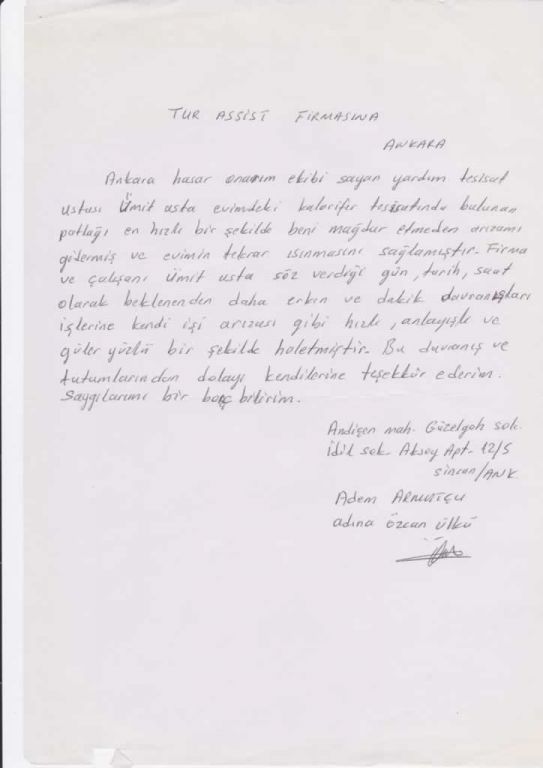 TUR ASSIST FIRMASINA
ANKARA
Ankara hasar onarım ekibi sayan yardım tesisat
ustası Ümit usta evimdeki kalorifer tesisatında bulunan
patlağı en hızlı bir şekilde beni mağdur etmeden arızamı
gidermiş ve evimin tekrar ısınmasını sağlamıştır. Firma
ve çalışanı Ümit usta söz verdiği gün, tarih, saat
olarak beklenenden daha erkin ve dakik davranışları
işlerine kendi işi arızası gibi hızlı, anlayışlı ve
güler yüzlü bir şekilde haletmiştir. Bu davranış ve
tutumlarından dolayı kendilerine teşekkür ederim.
Saygılarımı bir borç bilirim.
Andiçen mah. Güzelgah sok.
İdil sok. Aksoy Apt. 12/5
sincan/ANK.
Adem ARMUTÇU
adına özcan ülkü